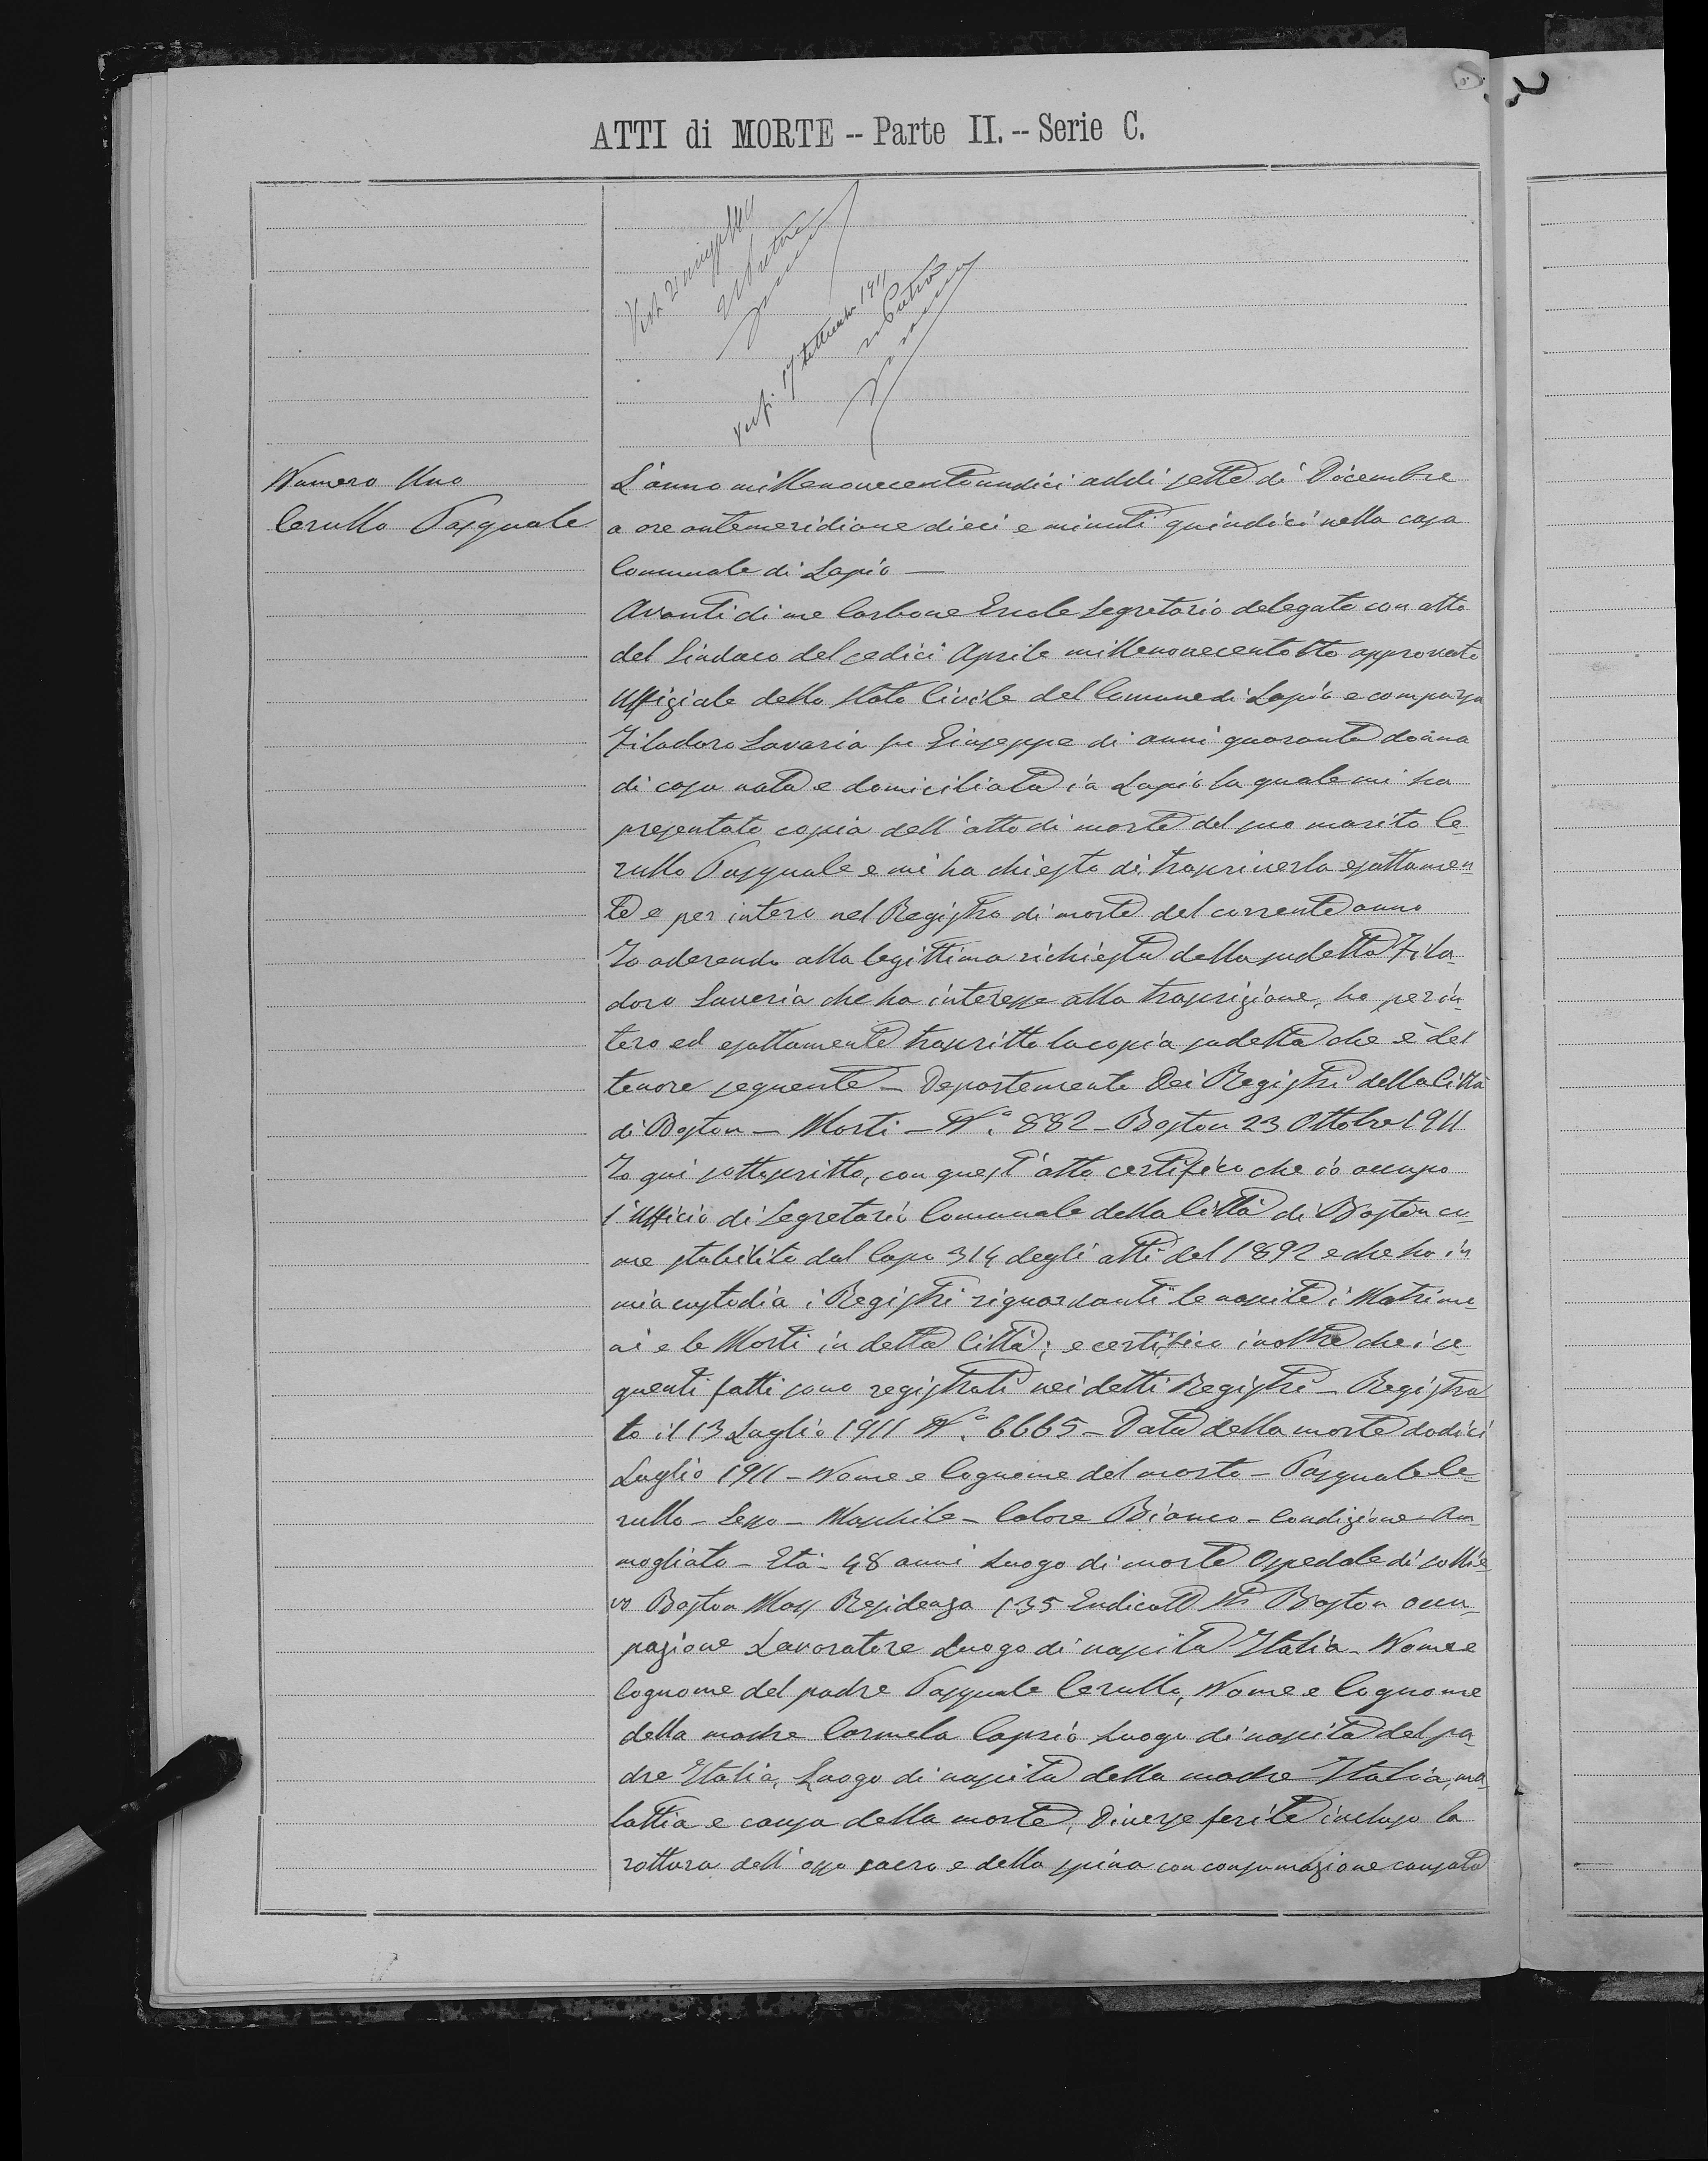 ATTI di MORTE -- Parte II. -- Serie C.
Numero Uno
Cerullo Pasquale
L'anno millenovecentoundici addi sette di Dicembre
a ore antemeridiane dieci e minuti quindici nella casa
Comunale di Lapio —
Avanti di me Carbone Ercole Segretario delegato con atto
del Sindaco del sedici Aprile millenovecentotto approvato
Uffiziale dello Stato Civile del Comune di Lapio e comparsa
Filadoro Savaria fu Giuseppe di anni quaranta donna
di casa nata e domiciliata in Lapio la quale mi ha
presentato copia dell'atto di morte del suo marito Ce-
rullo Pasquale e mi ha chiesto di trascriverla esattamen-
te e per intero nel Registro di morte del corrente anno
Io aderendo alla legittima richiesta della sudetta Fila-
doro Saveria che ha interesse alla trascrizione, ho per in-
tero ed esattamente trascritto la copia sudetta che è del
tenore seguente — Departemento Dei Registri della Città
di Boston — Morti — N.° 882 — Boston 23 Ottobre 1911
Io qui sottoscritto, con quest'atto certifico che io occupo
l'Ufficio di Segretario Comunale della Città di Boston co-
me stabilito dal Capo 314 degli atti del 1892 e che ho in
mia custodia i Registri riguardanti le nascite i Matrimo-
ni e le Morti in detta Città; e certifico inoltre che i se-
guenti fatti sono registrati nei detti Registri — Registra-
to il 13 Luglio 1911 N.° 6665 — Data della morte dodici
Luglio 1911 — Nome e Cognome del morto — Pasquale Ce-
rullo — Sesso — Maschile — Colore Bianco — Condizione Am-
mogliato — Età — 48 anni Luogo di morte Ospedale di sollie-
vo Boston Mass Residenza 135 Endicott Str Boston occu-
pazione Lavoratore Luogo di nascita Italia — Nome e
Cognome del padre Pasquale Cerullo, Nome e Cognome
della madre Carmela Caprio Luogo di nascita del pa-
dre Italia, Luogo di nascita della madre Italia, ma-
lattia e causa della morte, Diverse ferite incluso la
rottura dell'osso sacro e della spina con consumazione causata
verif. 17 settembre 1911